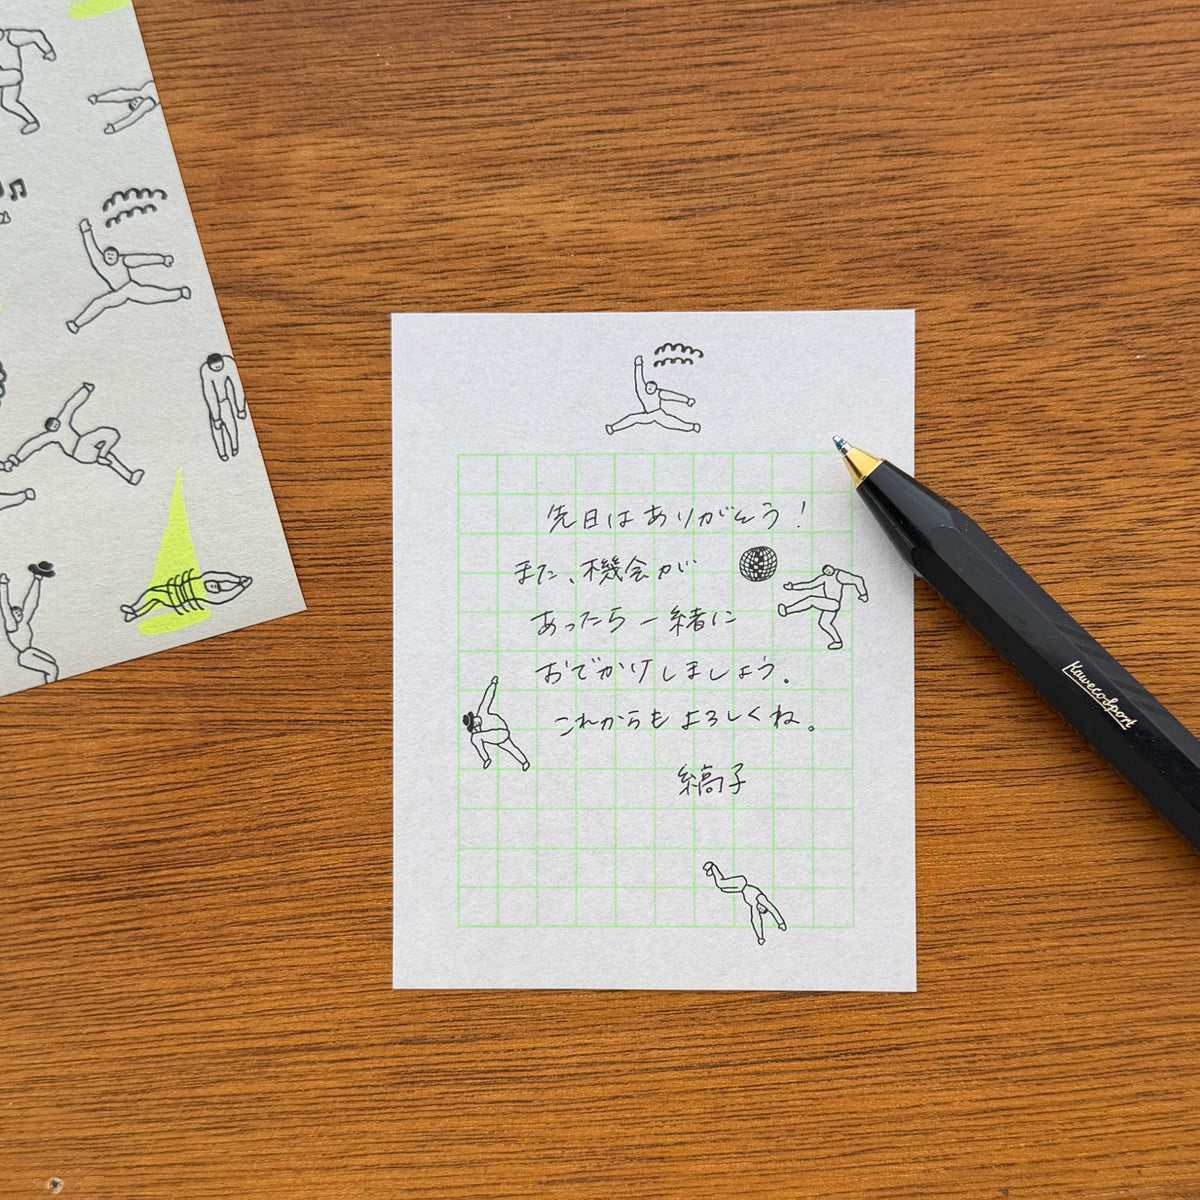 先日はありがとう！
また、機会が
あったら一緒に
おでかけしましょう。
これからもよろしくね。
縞子
KawecoSport